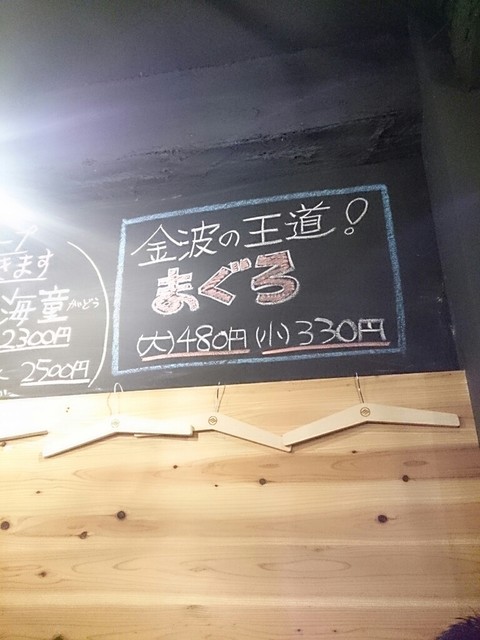 プ
きます
海童 かいどう
2300円
2500円
金波の王道!
まぐろ
(大)480円 (小)330円